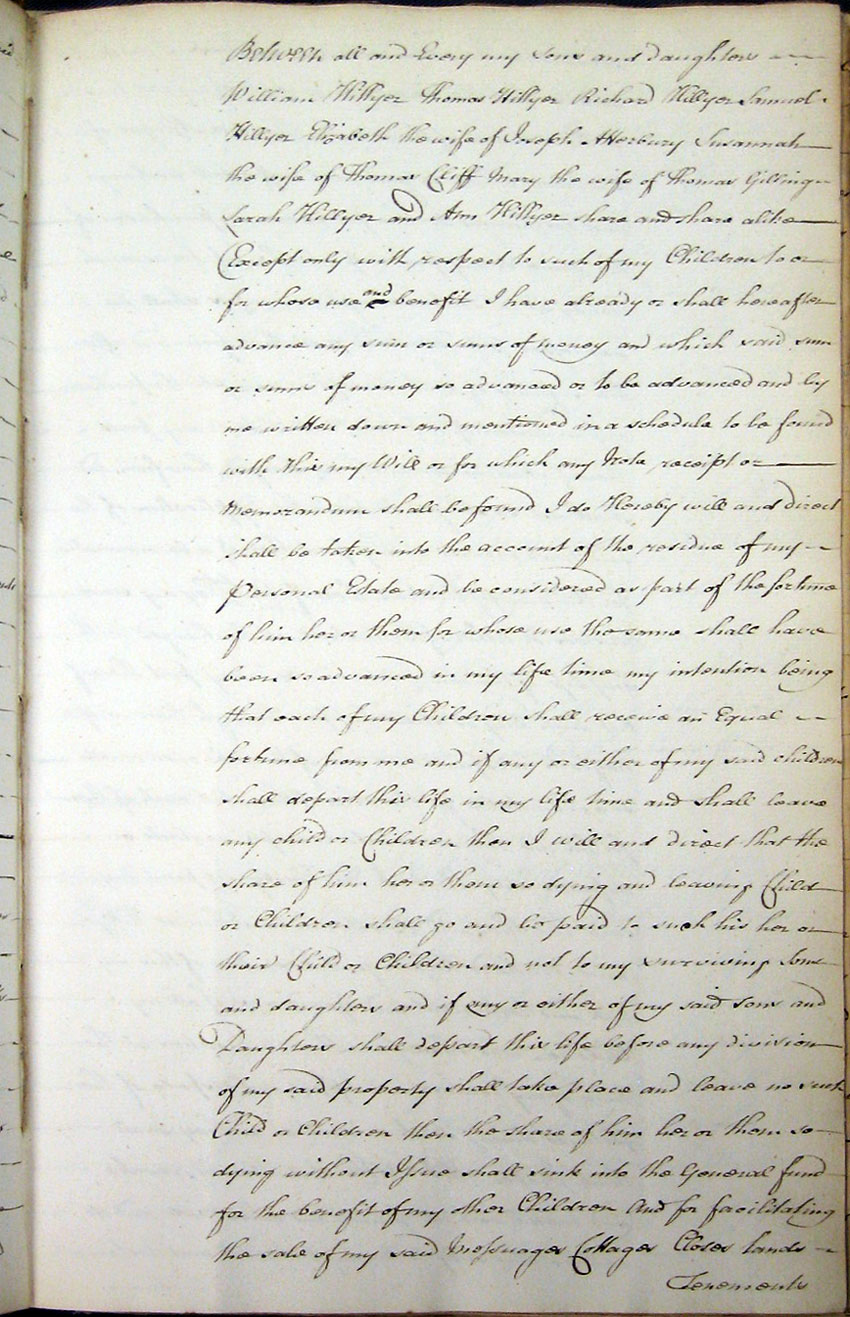 Between all and Every my sons and daughters
William Hillyer Thomas Hillyer Richard Hillyer Samuel
Hillyer Elizabeth the wife of Joseph Atterbury Susannah
the wife of Thomas Cliff Mary the wife of Thomas Gilling
Sarah Hillyer and Ann Hillyer share and share alike
(Except only with respect to such of my Children to or
for whose use and benefit I have already or shall hereafter
advance any sum or sums of money and which said sum
or sums of money so advanced or to be advanced and by
me written down and mentioned in a schedule to be found
with this my Will or for which any Note receipt or
Memorandum shall be found I do Hereby will and direct
shall be taken into the account of the residue of my
Personal Estate and be considered as part of the fortune
of him her or them for whose use the same shall have
been so advanced in my life time my intention being
that each of my Children shall receive an Equal
fortune from me and if any or either of my said children
shall depart this life in my life time and shall leave
any child or Children then I will and direct that the
share of him her or them so dying and leaving Child
or Children shall go and be paid to such his her or
their Child or Children and not to my surviving Sons
and daughters and if any or either of my said sons and
Daughters shall depart this life before any division
of my said property shall take place and leave no such
Child or Children then the share of him her or them so
dying without Issue shall sink into the General fund
for the benefit of my other Children And for facilitating
the sale of my said Messuages Cottages Closes lands
Tenements